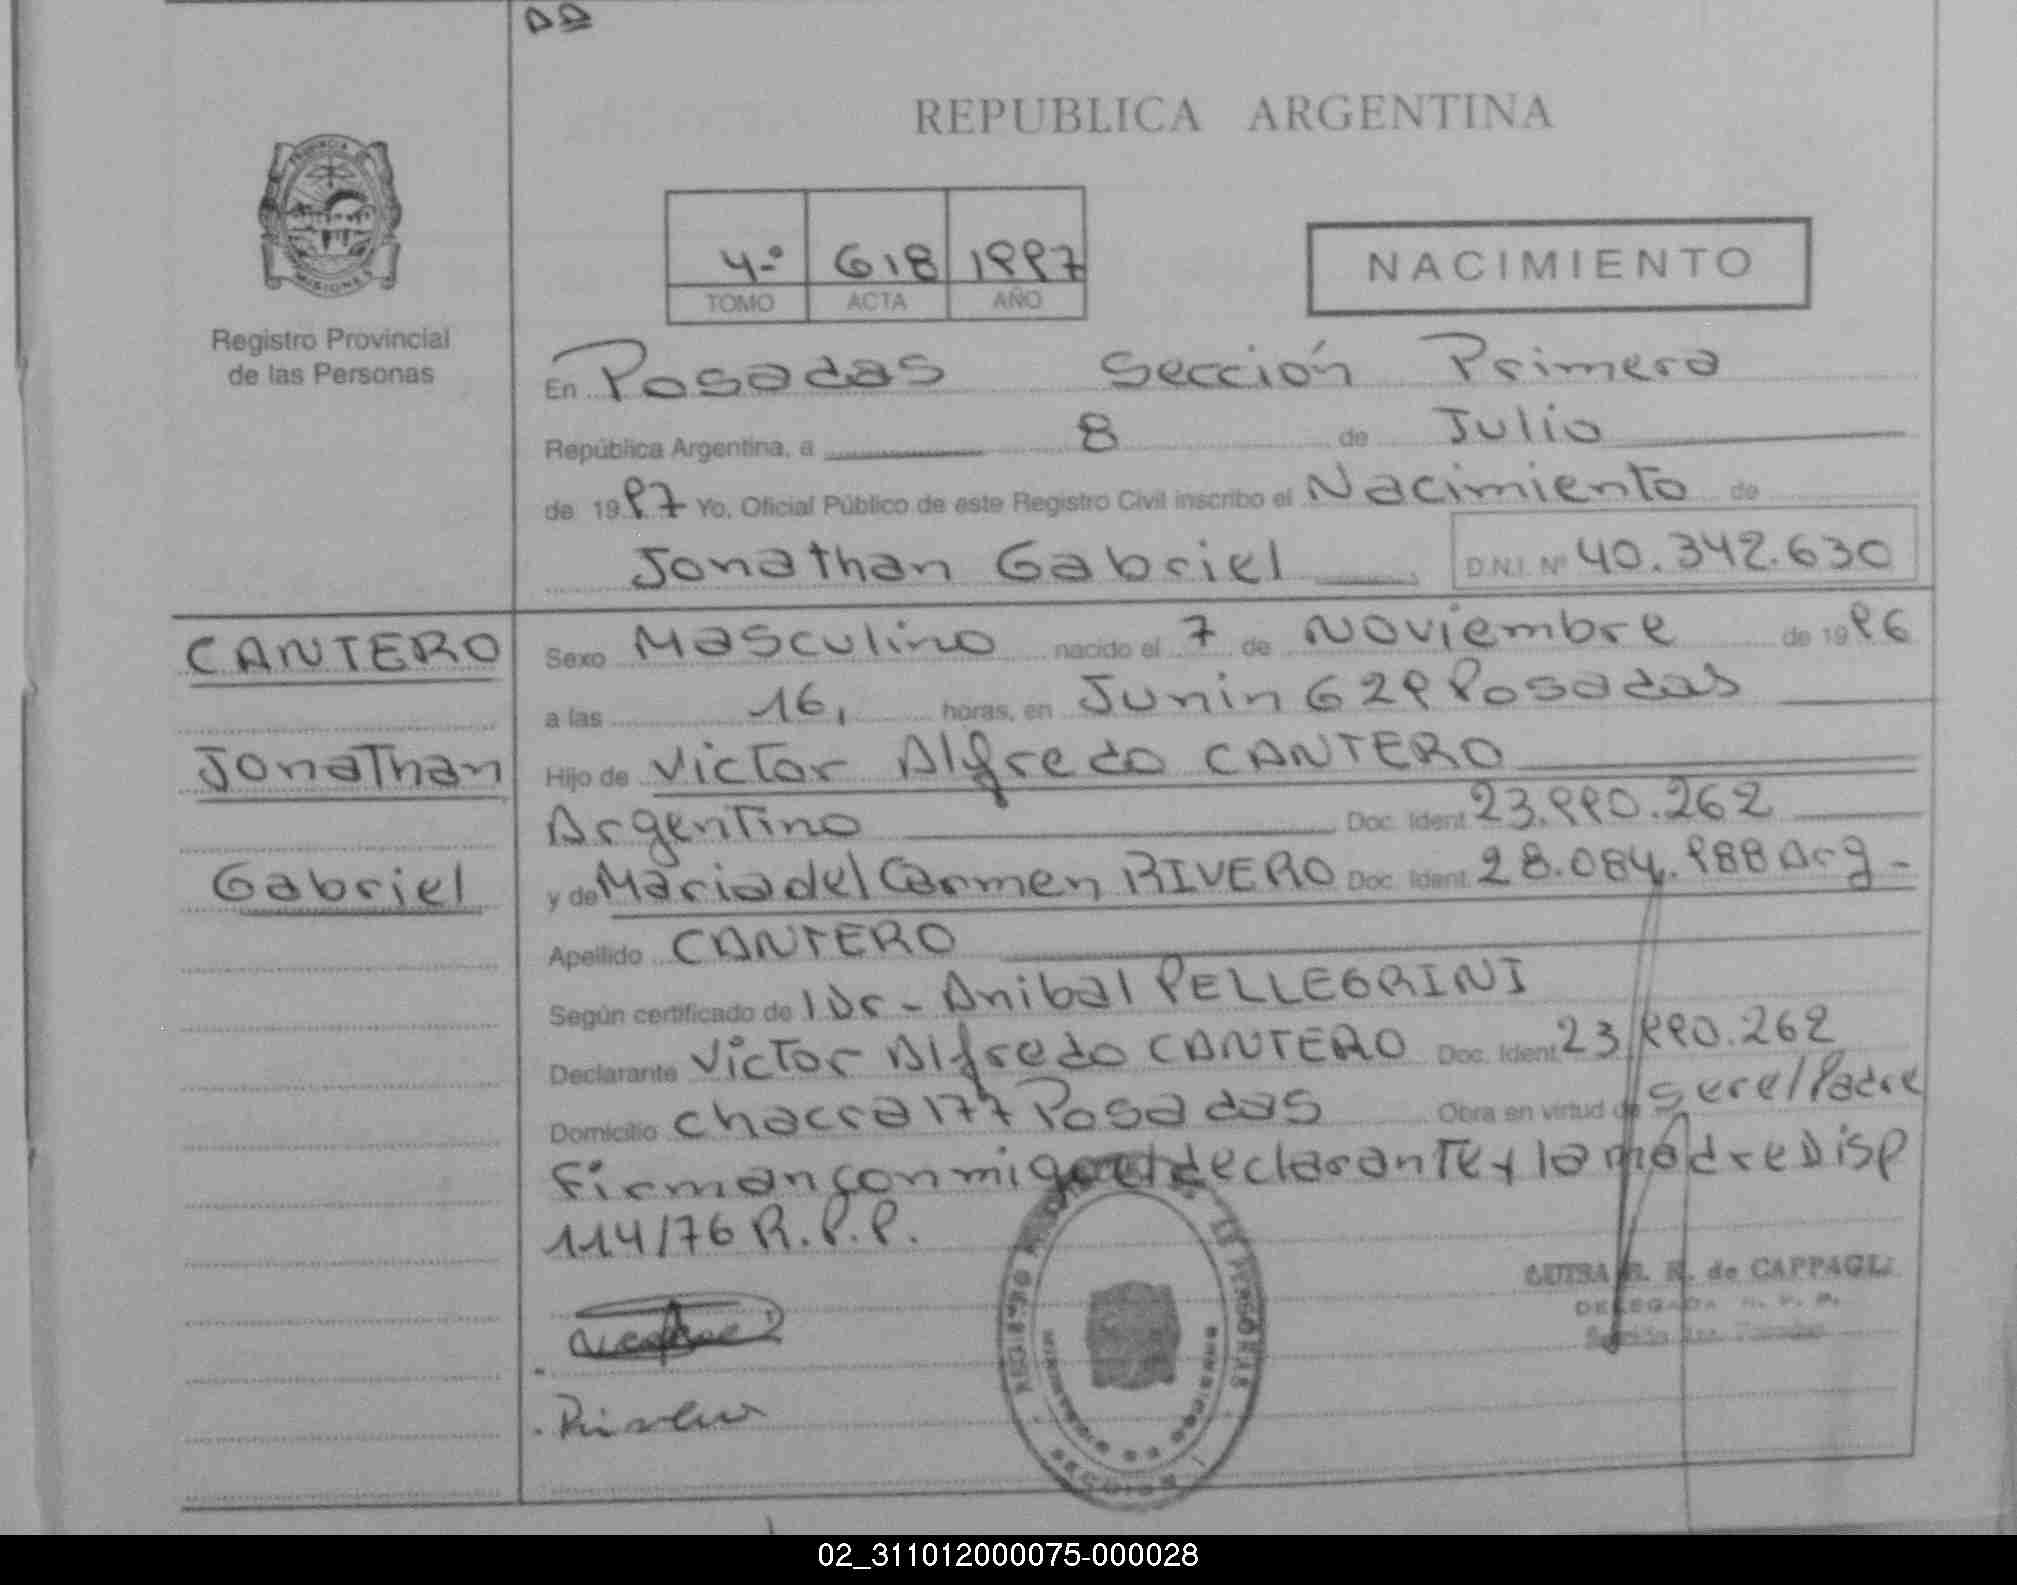 REPUBLICA ARGENTINA
PROVINCIA DE
MISIONES
Registro Provincial
de las Personas
4º 618 1997
TOMO ACTA AÑO
NACIMIENTO
En Posadas Sección Primera
República Argentina, a 8 de Julio
de 1997 Yo, Oficial Público de este Registro Civil inscribo el Nacimiento de
Jonathan Gabriel D.N.I. Nº 40.342.630
CANTERO
Jonathan
Gabriel
Sexo Masculino nacido el 7 de Noviembre de 1996
a las 16, horas, en Junin 629 Posadas
Hijo de Victor Alfredo CANTERO
Argentino Doc. Ident. 23.990.262
y de Maria del Carmen RIVERO Doc. Ident. 28.084.988 Arg-
Apellido CANTERO
Según certificado de l Dr- Anibal PELLEGRINI
Declarante Victor Alfredo CANTERO Doc. Ident. 23.990.262
Domicilio chacra 177 Posadas Obra en virtud de ser el Padre
Firman conmigo el declarante y la madre Disp
114/76 R.P.P.
LUISA R. R. de CAPPAGLI
DELEGADA R. P. P.
02_311012000075-000028